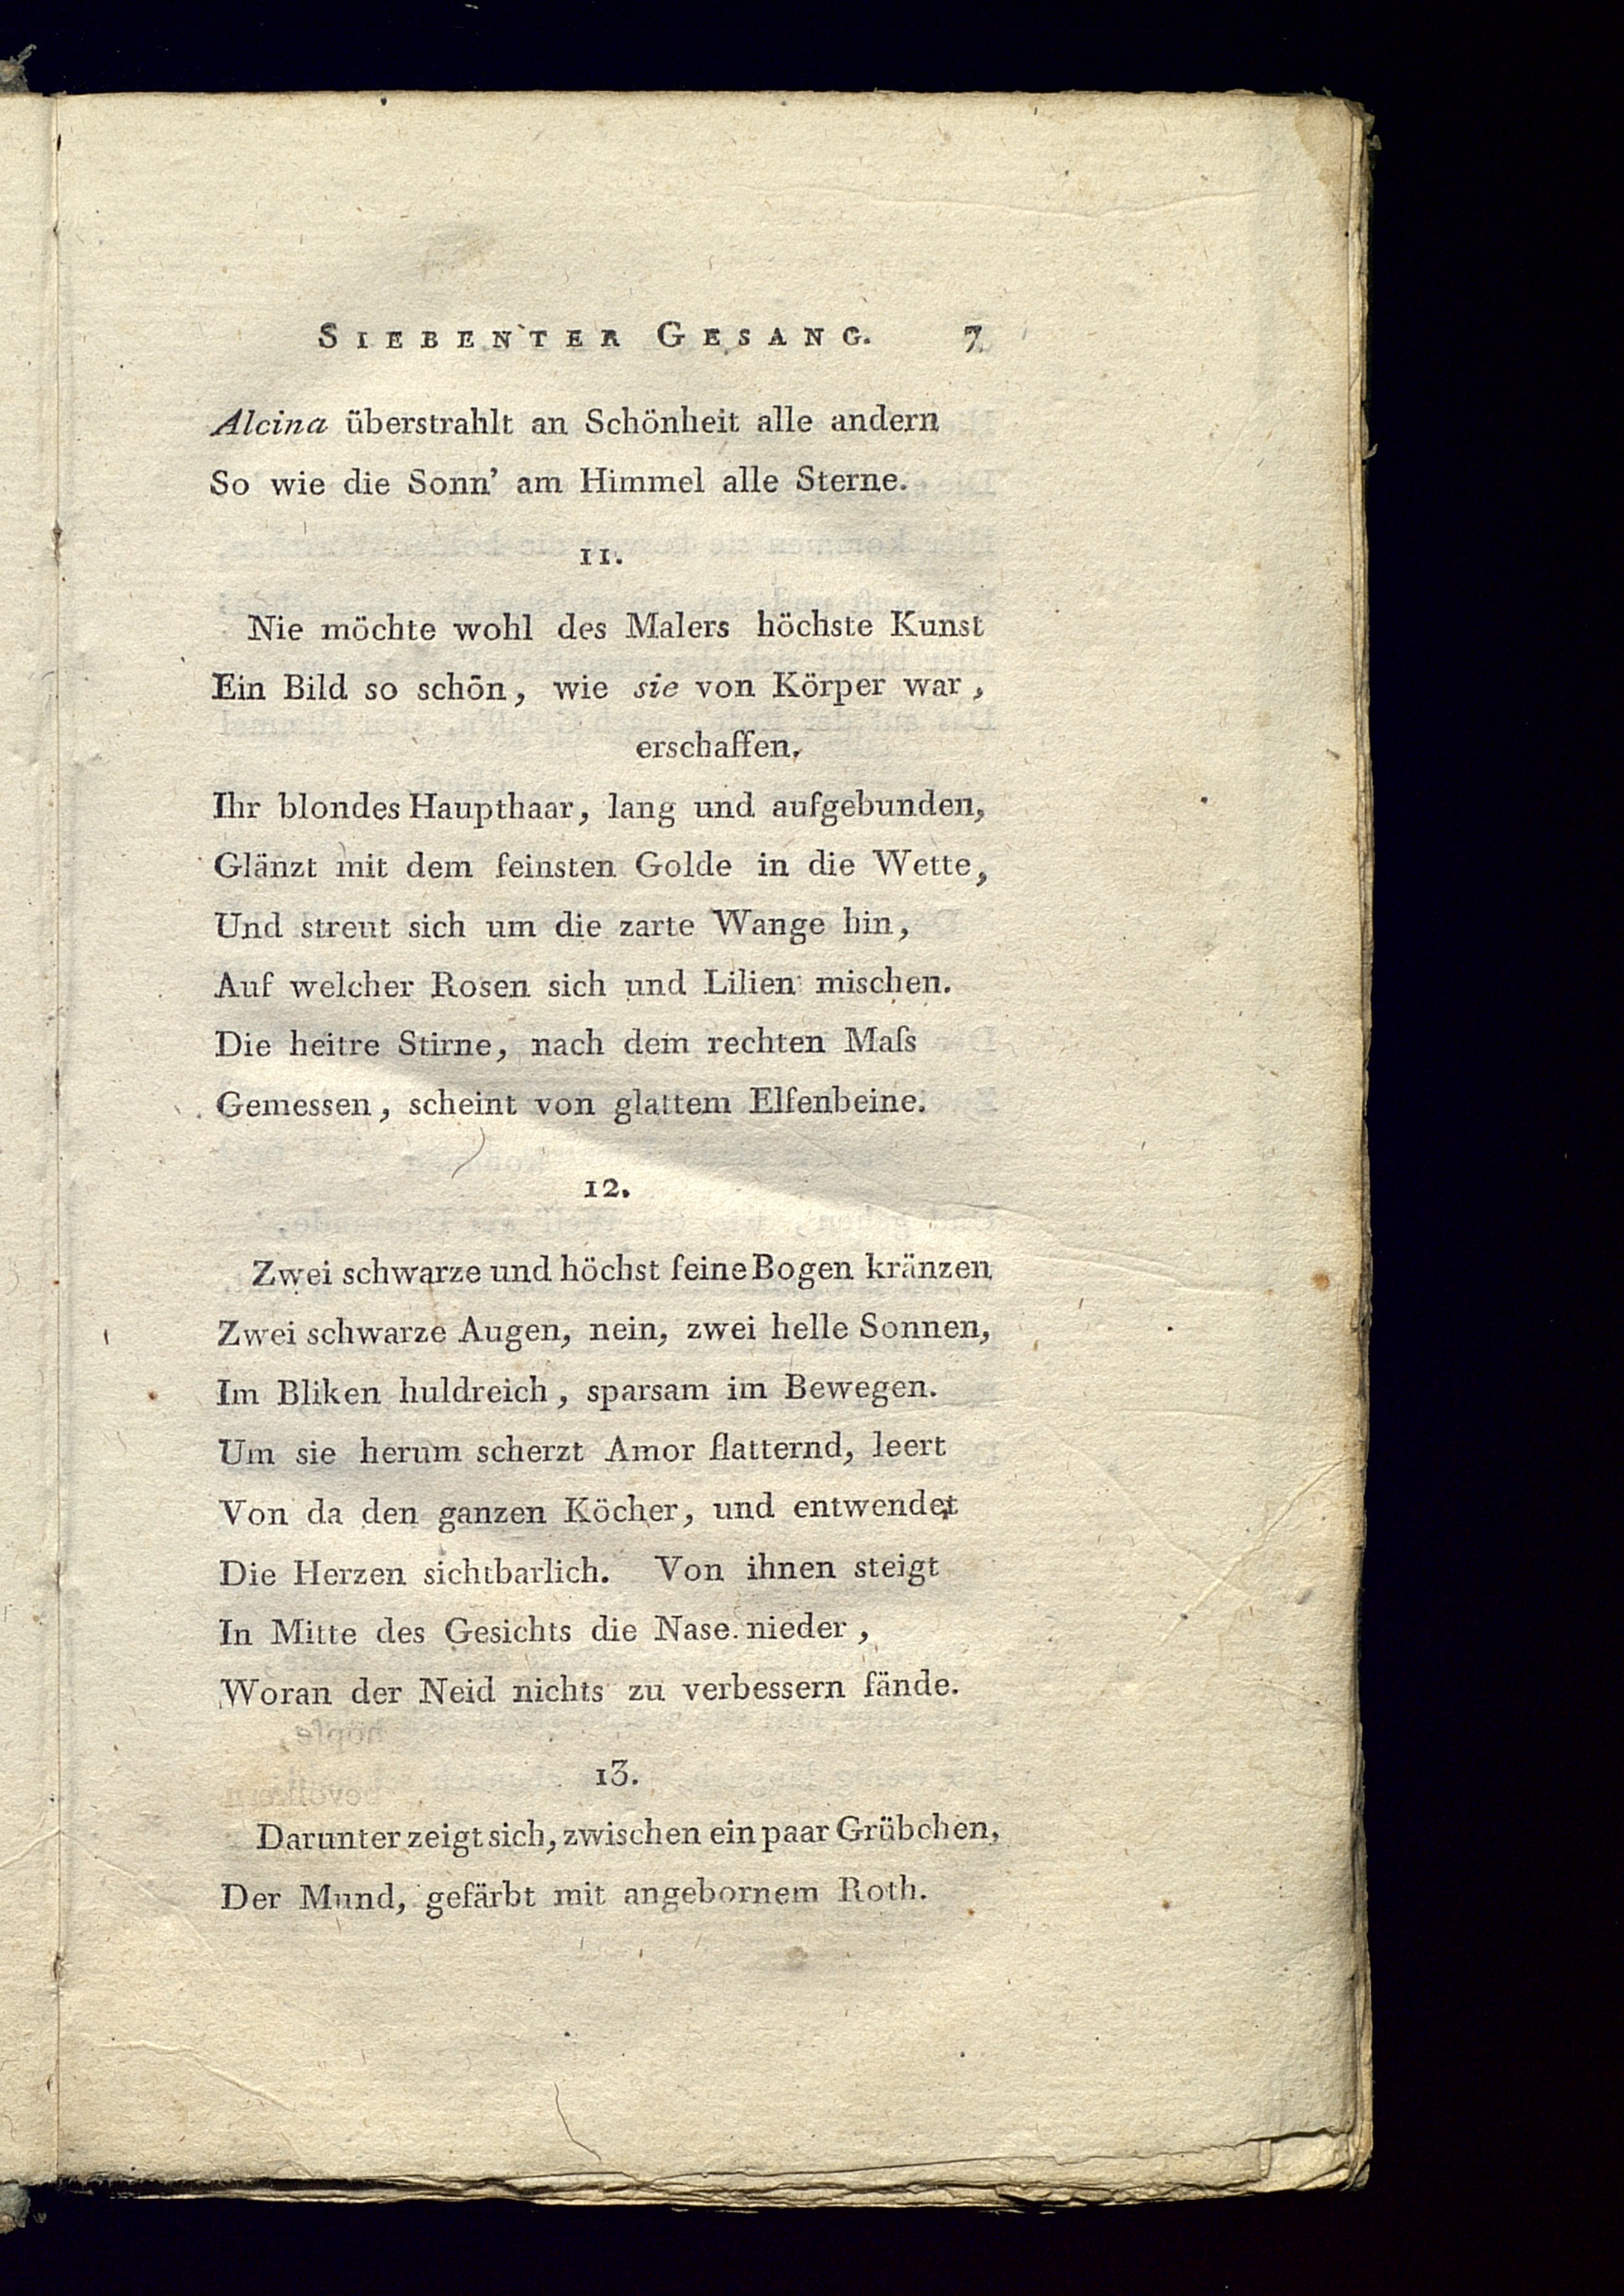 SIEBENTER GESANG. 7
Alcina überstrahlt an Schönheit alle andern
So wie die Sonn’ am Himmel alle Sterne.
11.
Nie möchte wohl des Malers höchste Kunst
Ein Bild so schön, wie sie von Körper war,
erschaffen.
Ihr blondes Haupthaar, lang und aufgebunden,
Glänzt mit dem feinsten Golde in die Wette,
Und streut sich um die zarte Wange hin,
Auf welcher Rosen sich und Lilien mischen.
Die heitre Stirne, nach dem rechten Maſs
Gemessen, scheint von glattem Elfenbeine.
12.
Zwei schwarze und höchst feine Bogen kränzen
Zwei schwarze Augen, nein, zwei helle Sonnen,
Im Bliken huldreich, sparsam im Bewegen.
Um sie herum scherzt Amor flatternd, leert
Von da den ganzen Köcher, und entwendet
Die Herzen sichtbarlich. Von ihnen steigt
In Mitte des Gesichts die Nase nieder,
Woran der Neid nichts zu verbessern fände.
13.
Darunter zeigt sich, zwischen ein paar Grübchen,
Der Mund, gefärbt mit angebornem Roth.